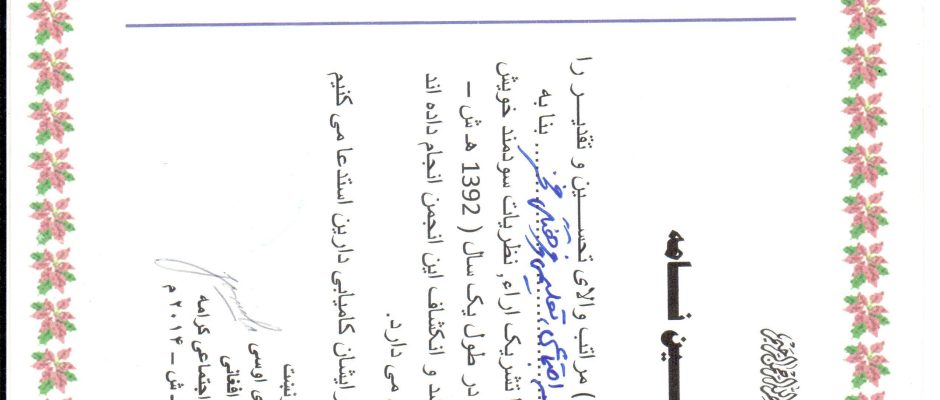 ـین نـــامه
) مراتب والای تحســـین و تقدیـــر را
اجتماعی، تعلیمی و فرهنگی ..... بنا به
تشریک اراء, نظریات سودمند خویش
در طول یک سال ( 1392 هـ ش –
د و انکشاف این انجمن انجام داده اند
می دارد.
رایشان کامیابی دارین استدعا می کنیم
ی اوسی
افغانی
اجتماعی کرامه
ش – ۲۰۱۴ م